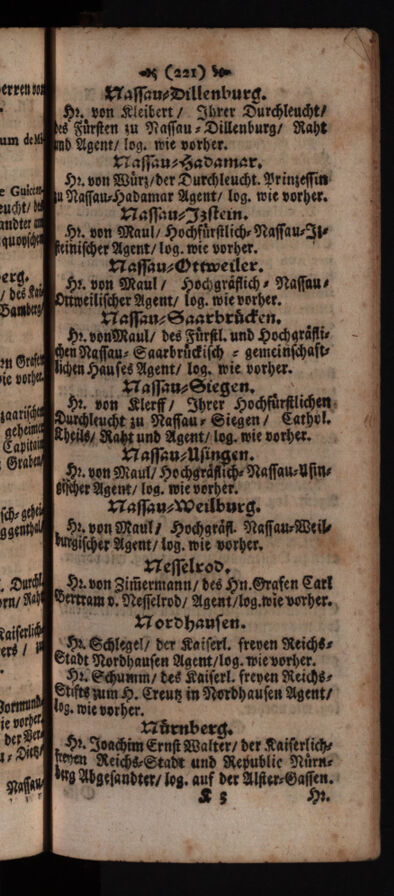 (221)
Nassau-Dillenburg.
Hr. von Kleibert / Ihrer Durchleucht /
des Fürsten zu Nassau-Dillenburg / Raht
und Agent / log. wie vorher.
Nassau-Hadamar.
Hr. von Würz / der Durchleucht. Prinzessin
zu Nassau-Hadamar Agent / log. wie vorher.
Nassau-Izstein.
Hr. von Maul / Hochfürstlich-Nassau-Iz-
steinischer Agent / log. wie vorher.
Nassau-Ottweiler.
Hr. von Maul / Hochgräflich-Nassau-
Ottweilischer Agent / log. wie vorher.
Nassau-Saarbrücken.
Hr. von Maul / des Fürstl. und Hochgräfli-
chen Nassau-Saarbrückisch-gemeinschaft-
lichen Hauses Agent / log. wie vorher.
Nassau-Siegen.
Hr. von Klerff / Ihrer Hochfürstlichen
Durchleucht zu Nassau-Siegen / Cathol.
Theils / Raht und Agent / log. wie vorher.
Nassau-Usingen.
Hr. von Maul / Hochgräflich-Nassau-Usin-
gischer Agent / log. wie vorher.
Nassau-Weilburg.
Hr. von Maul / Hochgräfl. Nassau-Weil-
burgischer Agent / log. wie vorher.
Nesselrod.
Hr. von Zim̃ermann / des Hn. Grafen Carl
Bertram v. Nesselrod / Agent / log. wie vorher.
Nordhausen.
Hr. Schlegel / der Kaiserl. freyen Reichs-
Stadt Nordhausen Agent / log. wie vorher.
Hr. Schumm / des Kaiserl. freyen Reichs-
Stifts zum H. Creutz in Nordhausen Agent /
log. wie vorher.
Nürnberg.
Hr. Joachim Ernst Walter / der Kaiserlich-
freyen Reichs-Stadt und Republic Nürn-
berg Abgesandter / log. auf der Alster-Gassen.
K 5 Hr.